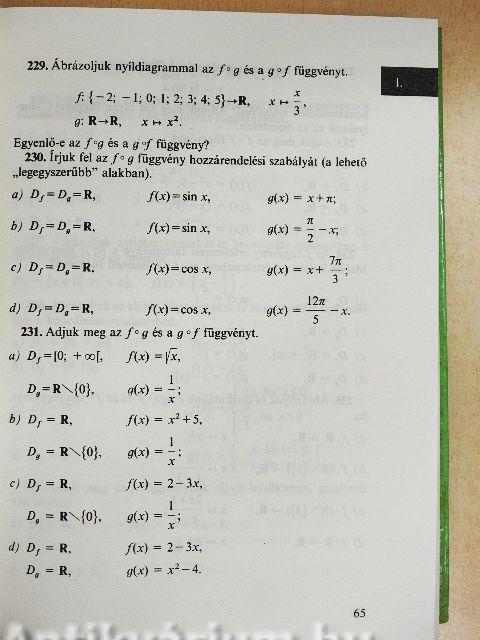 229. Ábrázoljuk nyíldiagrammal az f∘g és a g∘f függvényt.
I.
f: {−2; −1; 0; 1; 2; 3; 4; 5}→R, x ↦ x/3,
g: R→R, x ↦ x².
Egyenlő-e az f∘g és a g∘f függvény?
230. Írjuk fel az f∘g függvény hozzárendelési szabályát (a lehető
„legegyszerűbb" alakban).
a) D_f = D_g = R, f(x) = sin x, g(x) = x + π;
b) D_f = D_g = R, f(x) = sin x, g(x) = π/2 − x;
c) D_f = D_g = R, f(x) = cos x, g(x) = x + 7π/3;
d) D_f = D_g = R, f(x) = cos x, g(x) = 12π/5 − x.
231. Adjuk meg az f∘g és a g∘f függvényt.
a) D_f = [0; +∞[, f(x) = √x,
D_g = R∖{0}, g(x) = 1/x;
b) D_f = R, f(x) = x² + 5,
D_g = R∖{0}, g(x) = 1/x;
c) D_f = R, f(x) = 2 − 3x,
D_g = R∖{0}, g(x) = 1/x;
d) D_f = R, f(x) = 2 − 3x,
D_g = R, g(x) = x² − 4.
65
Antikvárium.hu